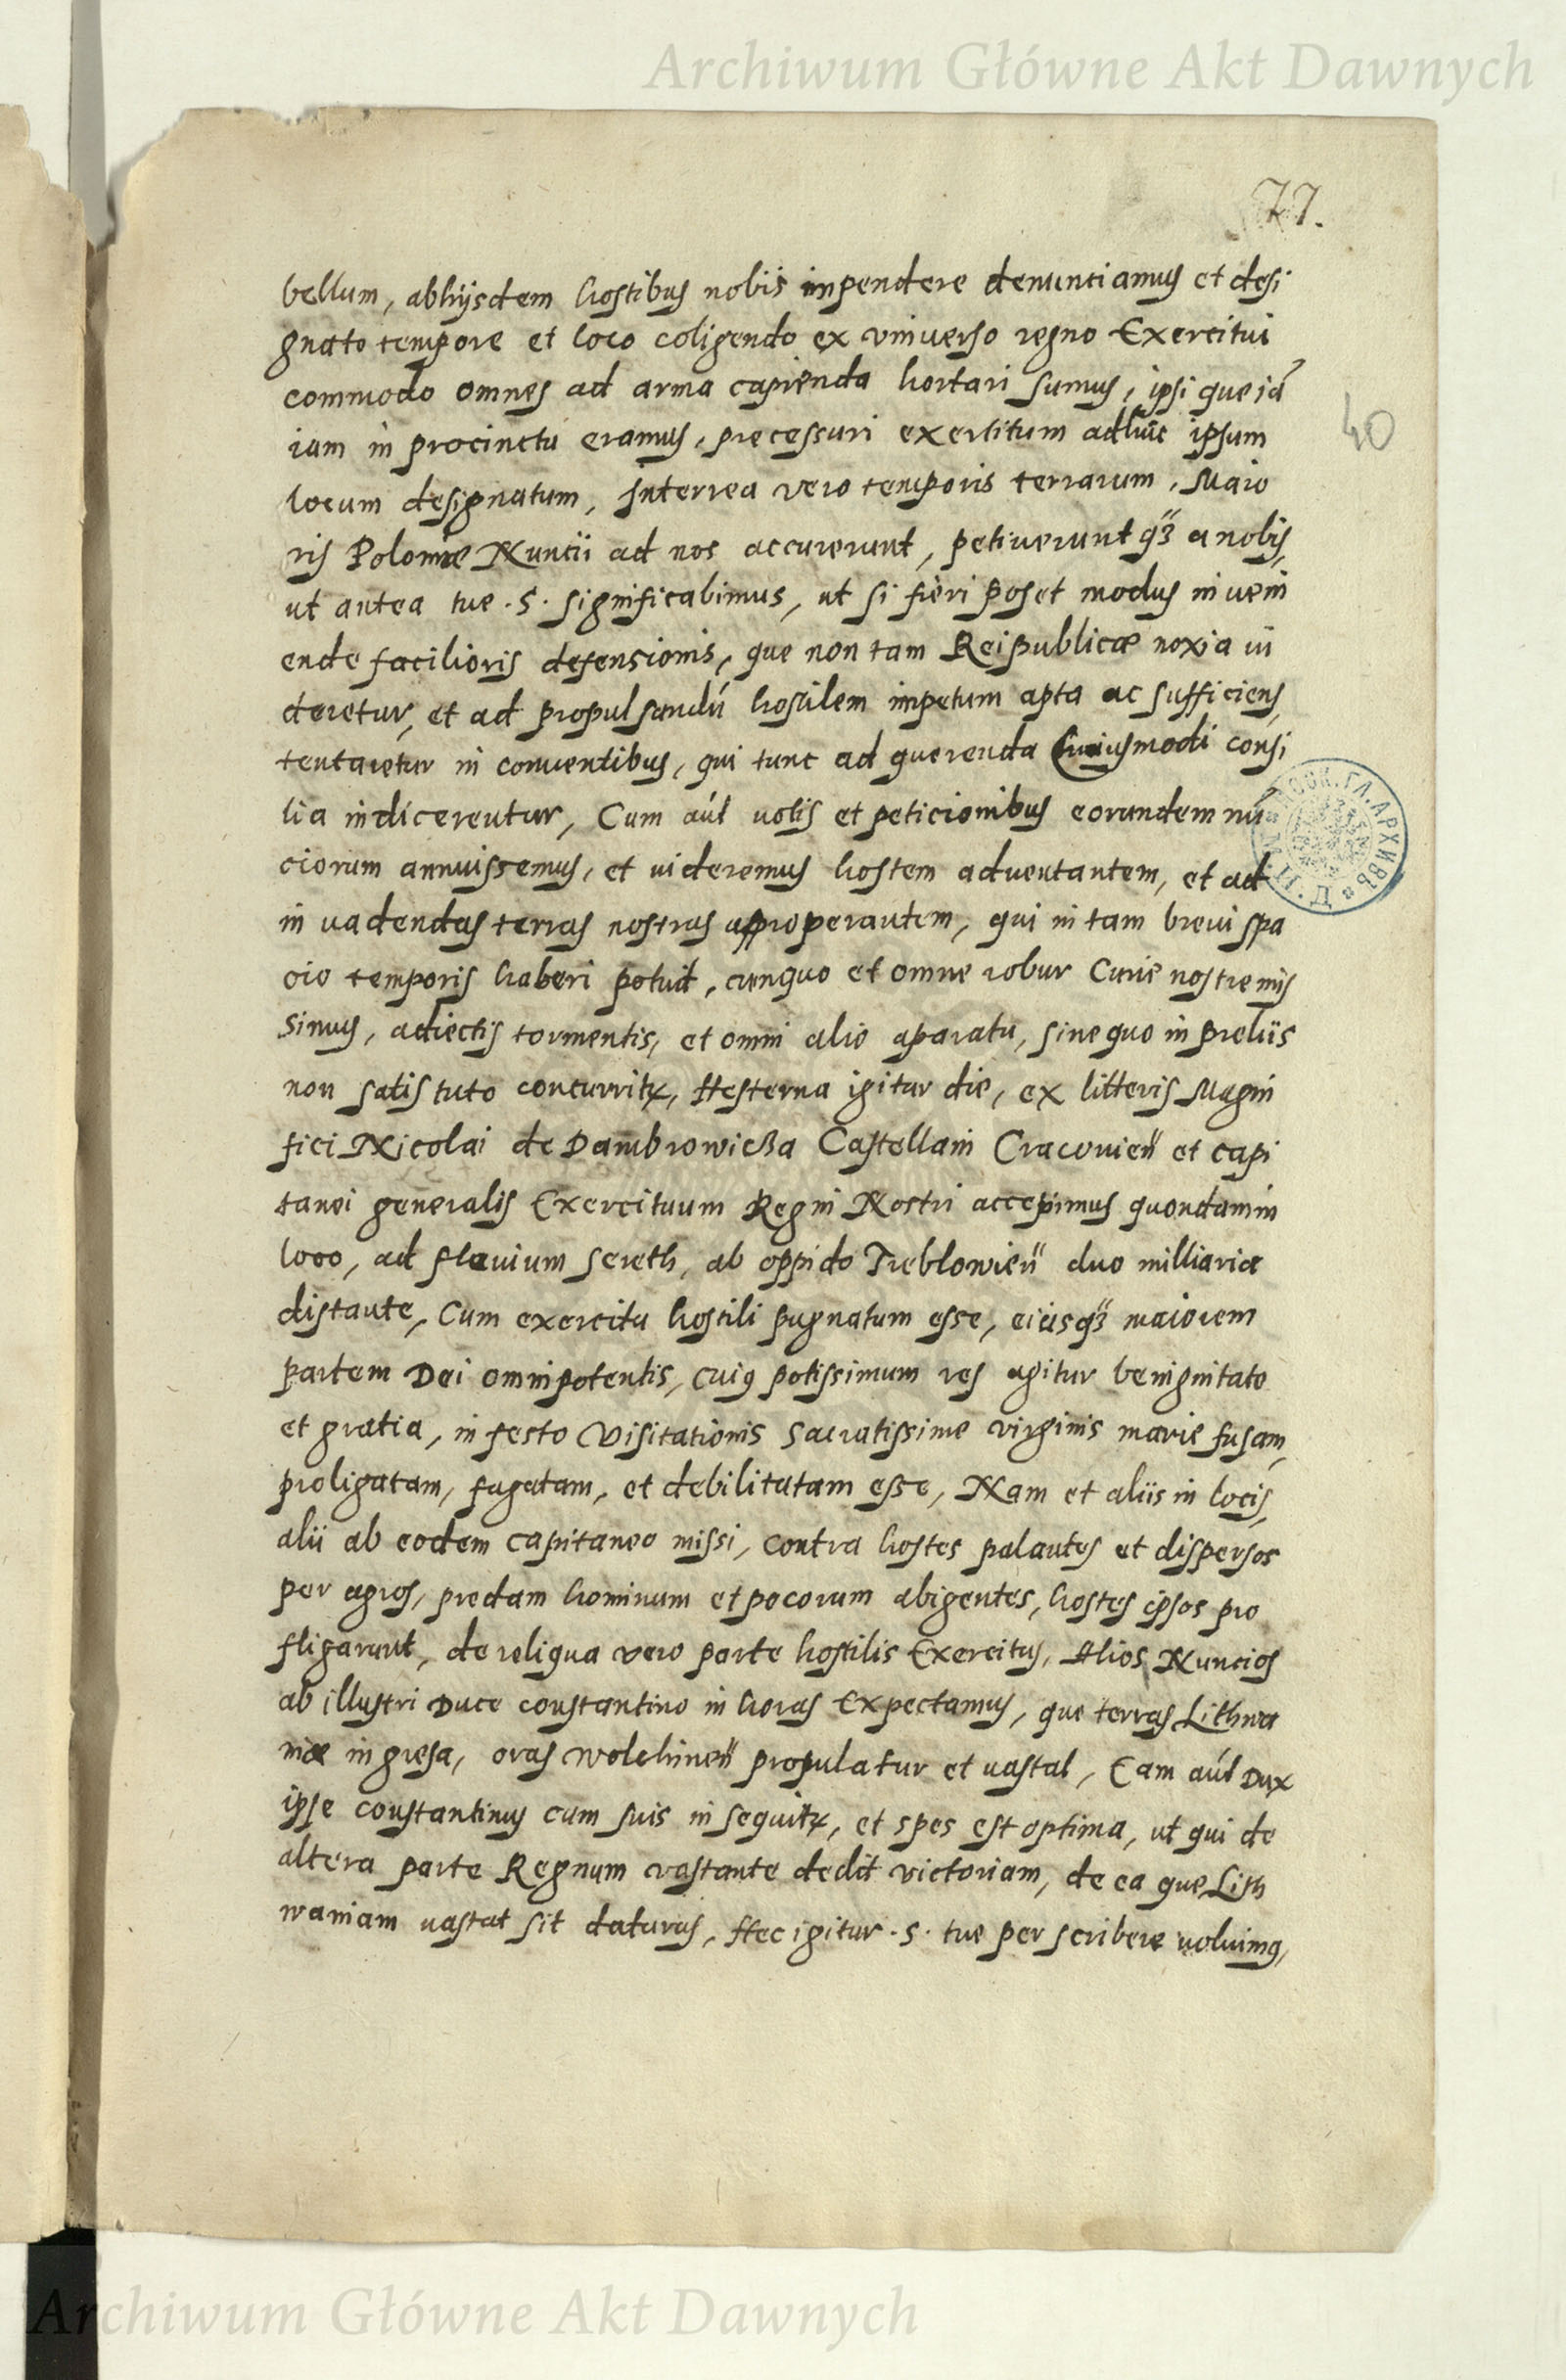 Archiwum Główne Akt Dawnych
77.
bellum, abhijsdem hostibus nobis inpendere denunciamus et desi
gnato tempore et loco coligendo ex vniuerso regno Exercitui
commodo omnes ad arma capienda hortari sumus, ipsi que iā
iam in procinctu eramus, precessuri exercitum adhūc ipsum
40
locum designatum, Interrea vero temporis terrarum, Maio
ris Polonie Nuncii ad nos accurerunt, petiuerunt qȝ a nobis,
ut antea tue .S. significabimus, ut si fieri poset modus inueni
ende facilioris defensionis, que non tam Reipublicæ noxia ui
deretur, et ad propulsandū hostilem impetum apta ac sufficiens,
tentaretur in conuentibus, qui tunc ad querenda huiusmodi consi
lia indicerentur, Cum aūt uotis et peticionibus eorundem nū
ciorum annuissemus, et uideremus hostem aduentantem, et ad
inuadendas terras nostras approperantem, qui in tam breui spa
cio temporis haberi potuit, cunquo et omne robur Curie nostre mis
simus, adiectis tormentis, et omni alio aparatu, sine quo in preliis
non satis tuto concurritꝛ, Hesterna igitur die, ex litteris Magni
fici Nicolai de Dambrowicza Castellani Cracouien̄ et capi
tanei generalis Exercituum Regni Nostri accepimus quondam in
loco, ad flauium Sereth, ab oppido Treblowien̄ duo milliaria
distante, Cum exercitu hostili pugnatum esse, eiusqȝ maiorem
partem Dei omnipotentis, cuiꝰ potissimum res agitur benignitate
et gratia, in festo Visitationis Sacratissime virginis marie fusam,
proligatam, fugatam, et debilitatam esse, Nam et aliis in locis,
alii ab eodem capitaneo missi, contra hostes palantes et dispersos
per agros, predam hominum et pecorum abigentes, hostes ipsos pro
fligarunt, de reliqua vero parte hostilis Exercitus, Alios Nuncios
ab illustri Duce constantino in horas Expectamus, que terras Lithwa
niæ ingresa, oras wolchinen̄ propulatur et uastat, Eam aūt Dux
ipse constantinus cum suis insequitꝛ, et spes est optima, ut qui de
altera parte Regnum vastante dedit victoriam, de ea que Lith
waniam uastat sit daturus, Hec igitur .S. tue perscribere uoluimꝰ,
Archiwum Główne Akt Dawnych